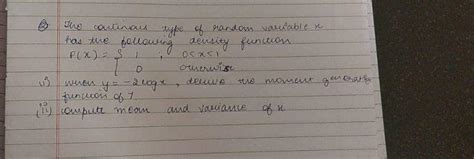 Q The continous type of random variable x
has the following density function
f(x) = { 1 ; 0<x<1
0 otherwise
i) when y = -2logx, derive the moment generating
function of Y
(ii) compute mean and variance of x